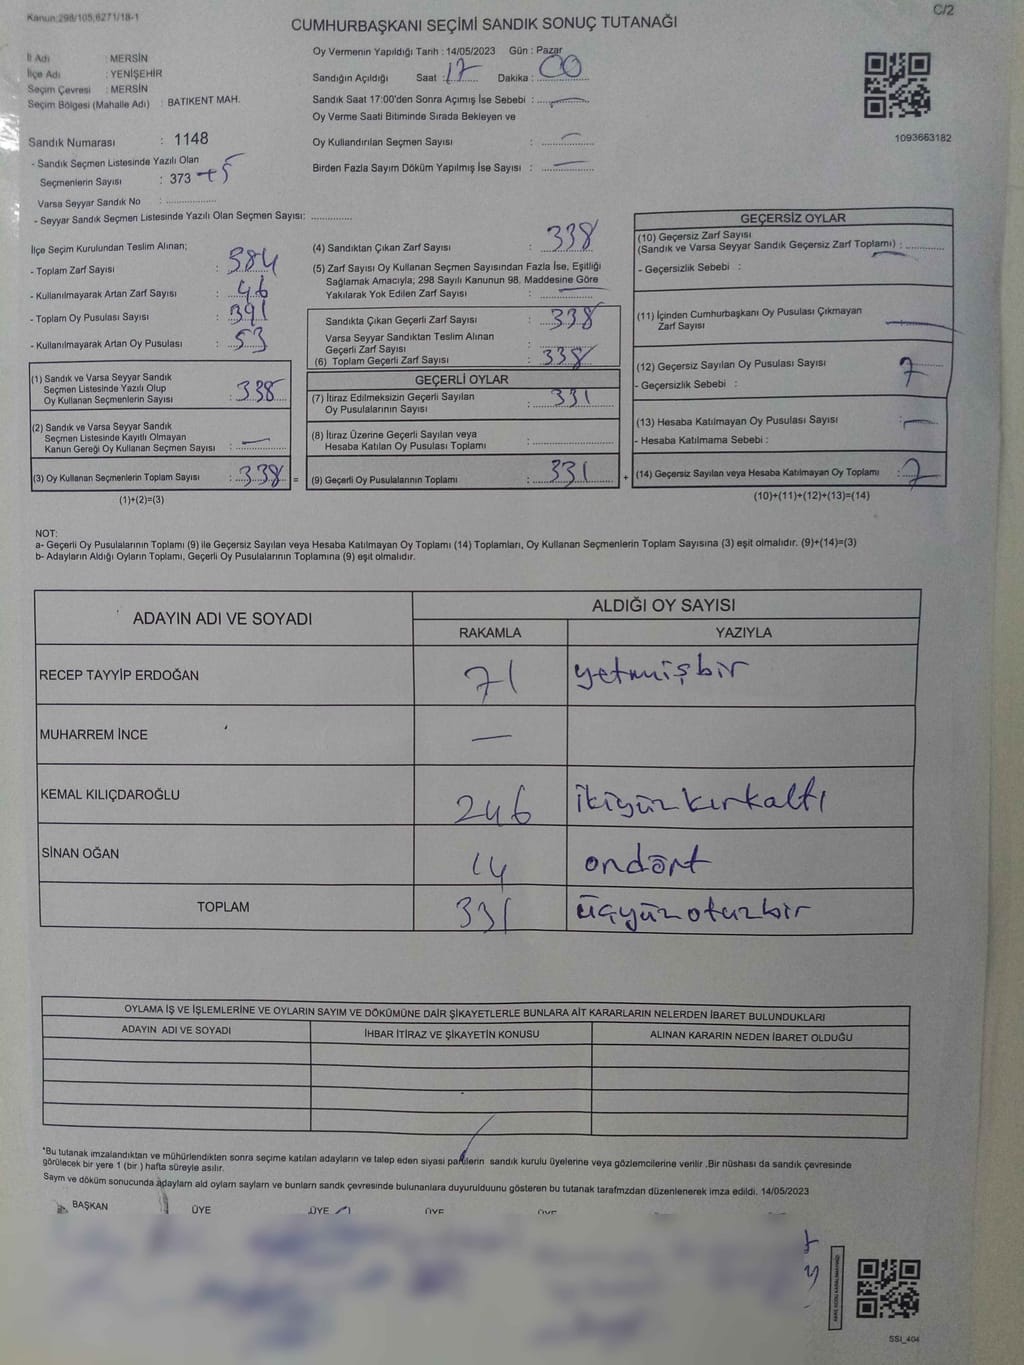 Kanun:298/105,6271/18-1
C/2
CUMHURBAŞKANI SEÇİMİ SANDIK SONUÇ TUTANAĞI
İl Adı : MERSİN
İlçe Adı : YENİŞEHİR
Seçim Çevresi : MERSİN
Seçim Bölgesi (Mahalle Adı) : BATIKENT MAH.
Sandık Numarası : 1148
- Sandık Seçmen Listesinde Yazılı Olan
Seçmenlerin Sayısı : 373 +5
Varsa Seyyar Sandık No : ..................
- Seyyar Sandık Seçmen Listesinde Yazılı Olan Seçmen Sayısı: ..............
Oy Vermenin Yapıldığı Tarih : 14/05/2023 Gün : Pazar
Sandığın Açıldığı Saat : 17 Dakika : 00
Sandık Saat 17:00'den Sonra Açımış İse Sebebi : —
Oy Verme Saati Bitiminde Sırada Bekleyen ve
Oy Kullandırılan Seçmen Sayısı : —
Birden Fazla Sayım Döküm Yapılmış İse Sayısı : —
1093663182
İlçe Seçim Kurulundan Teslim Alınan;
- Toplam Zarf Sayısı : 384
- Kullanılmayarak Artan Zarf Sayısı : 46
- Toplam Oy Pusulası Sayısı : 391
- Kullanılmayarak Artan Oy Pusulası : 53
(1) Sandık ve Varsa Seyyar Sandık
Seçmen Listesinde Yazılı Olup
Oy Kullanan Seçmenlerin Sayısı : 338
(2) Sandık ve Varsa Seyyar Sandık
Seçmen Listesinde Kayıtlı Olmayan
Kanun Gereği Oy Kullanan Seçmen Sayısı : —
(3) Oy Kullanan Seçmenlerin Toplam Sayısı : 338 =
(1)+(2)=(3)
(4) Sandıktan Çıkan Zarf Sayısı : 338
(5) Zarf Sayısı Oy Kullanan Seçmen Sayısından Fazla İse, Eşitliği
Sağlamak Amacıyla; 298 Sayılı Kanunun 98. Maddesine Göre
Yakılarak Yok Edilen Zarf Sayısı : —
Sandıkta Çıkan Geçerli Zarf Sayısı : 338
Varsa Seyyar Sandıktan Teslim Alınan
Geçerli Zarf Sayısı :
(6) Toplam Geçerli Zarf Sayısı : 338
GEÇERLİ OYLAR
(7) İtiraz Edilmeksizin Geçerli Sayılan
Oy Pusulalarının Sayısı : 331
(8) İtiraz Üzerine Geçerli Sayılan veya
Hesaba Katılan Oy Pusulası Toplamı : ..................
(9) Geçerli Oy Pusulalarının Toplamı : 331 +
GEÇERSİZ OYLAR
(10) Geçersiz Zarf Sayısı
(Sandık ve Varsa Seyyar Sandık Geçersiz Zarf Toplamı) : —
- Geçersizlik Sebebi :
(11) İçinden Cumhurbaşkanı Oy Pusulası Çıkmayan
Zarf Sayısı —
(12) Geçersiz Sayılan Oy Pusulası Sayısı : 7
- Geçersizlik Sebebi :
(13) Hesaba Katılmayan Oy Pusulası Sayısı : —
- Hesaba Katılmama Sebebi :
(14) Geçersiz Sayılan veya Hesaba Katılmayan Oy Toplamı : 7
(10)+(11)+(12)+(13)=(14)
NOT:
a- Geçerli Oy Pusulalarının Toplamı (9) ile Geçersiz Sayılan veya Hesaba Katılmayan Oy Toplamı (14) Toplamları, Oy Kullanan Seçmenlerin Toplam Sayısına (3) eşit olmalıdır. (9)+(14)=(3)
b- Adayların Aldığı Oyların Toplamı, Geçerli Oy Pusulalarının Toplamına (9) eşit olmalıdır.
ADAYIN ADI VE SOYADI
ALDIĞI OY SAYISI
RAKAMLA YAZIYLA
RECEP TAYYİP ERDOĞAN 71 yetmişbir
MUHARREM İNCE —
KEMAL KILIÇDAROĞLU 246 ikiyüzkırkaltı
SİNAN OĞAN 14 ondört
TOPLAM 331 üçyüzotuzbir
OYLAMA İŞ VE İŞLEMLERİNE VE OYLARIN SAYIM VE DÖKÜMÜNE DAİR ŞİKAYETLERLE BUNLARA AİT KARARLARIN NELERDEN İBARET BULUNDUKLARI
ADAYIN ADI VE SOYADI İHBAR İTİRAZ VE ŞİKAYETİN KONUSU ALINAN KARARIN NEDEN İBARET OLDUĞU
*Bu tutanak imzalandıktan ve mühürlendikten sonra seçime katılan adayların ve talep eden siyasi partilerin sandık kurulu üyelerine veya gözlemcilerine verilir .Bir nüshası da sandık çevresinde
görülecek bir yere 1 (bir ) hafta süreyle asılır.
Saym ve döküm sonucunda adaylarn ald oylarn saylarn ve bunlarn sandk çevresinde bulunanlara duyurulduunu gösteren bu tutanak tarafmzdan düzenlenerek imza edildi. 14/05/2023
BAŞKAN ÜYE ÜYE ÜYE ÜYE
SSI_404